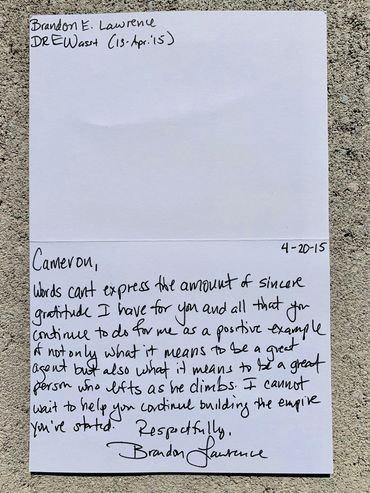 Brandon E. Lawrence
DREWasst (13-Apr.'15)
4-20-15
Cameron,
Words cant express the amount of sincere
gratitude I have for you and all that you
continue to do for me as a positive example
of not only what it means to be a great
agent but also what it means to be a great
person who lifts as he climbs. I cannot
wait to help you continue building the empire
you've started. Respectfully,
Brandon Lawrence